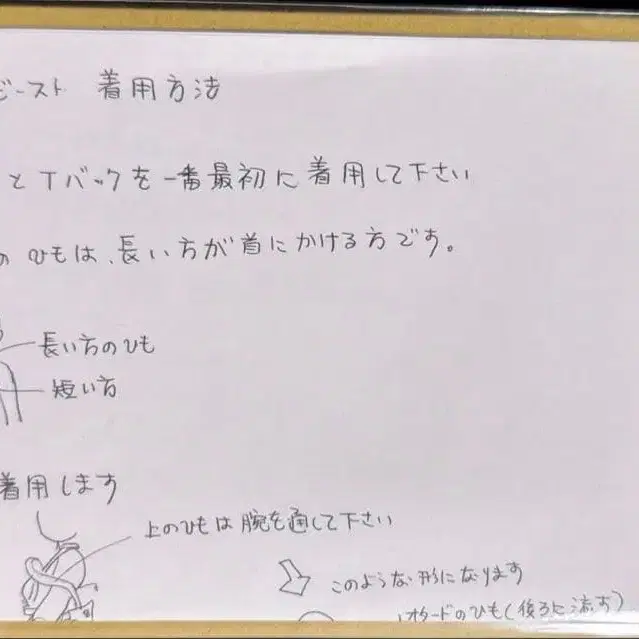 ビースト 着用方法
とTバックを一番最初に着用して下さい
のひもは、長い方が首にかける方です。
長い方のひも
短い方
着用します
上のひもは腕を通して下さい
このような形になります
オタードのひも(後ろに流す)